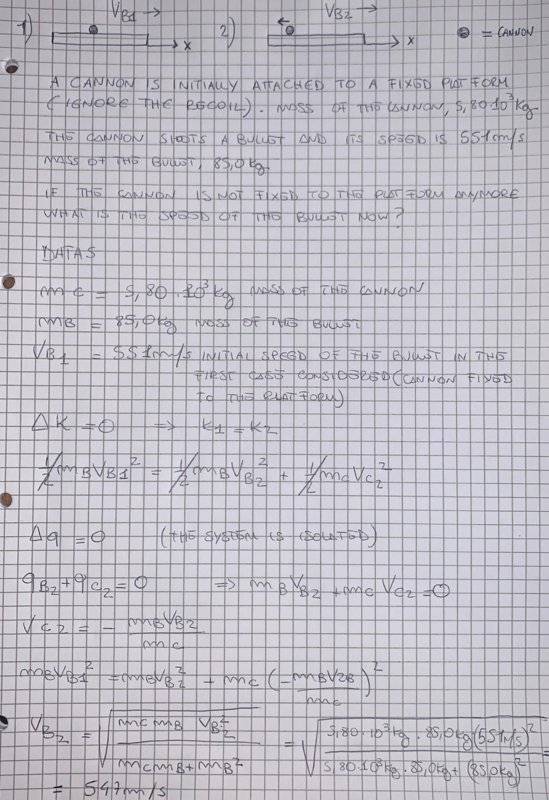 1) VB1 → x 2) VB2 → x = CANNON
A CANNON IS INITIALLY ATTACHED TO A FIXED PLATFORM
(IGNORE THE RECOIL). MASS OF THE CANNON, 5,80·10³ kg
THE CANNON SHOOTS A BULLET AND ITS SPEED IS 551 m/s
MASS OF THE BULLET, 85,0 kg
IF THE CANNON IS NOT FIXED TO THE PLATFORM ANYMORE
WHAT IS THE SPEED OF THE BULLET NOW?
DATAS
mC = 5,80·10³ kg MASS OF THE CANNON
mB = 85,0 kg MASS OF THE BULLET
VB1 = 551 m/s INITIAL SPEED OF THE BULLET IN THE
FIRST CASE CONSIDERED (CANNON FIXED
TO THE PLATFORM)
ΔK = 0 ⇒ K1 = K2
1/2 mB VB1² = 1/2 mB VB2² + 1/2 mC VC2²
Δq = 0 (THE SYSTEM IS ISOLATED)
qB2 + qC2 = 0 ⇒ mB VB2 + mC VC2 = 0
VC2 = - mB VB2 / mC
mB VB1² = mB VB2² + mC (- mB V2B / mC)²
VB2 = √(mC mB VB2² / mC mB + mB²) = √(5,80·10³ kg · 85,0 kg (551 m/s)² / 5,80·10³ kg · 85,0 kg + (85,0 kg)²) =
= 547 m/s